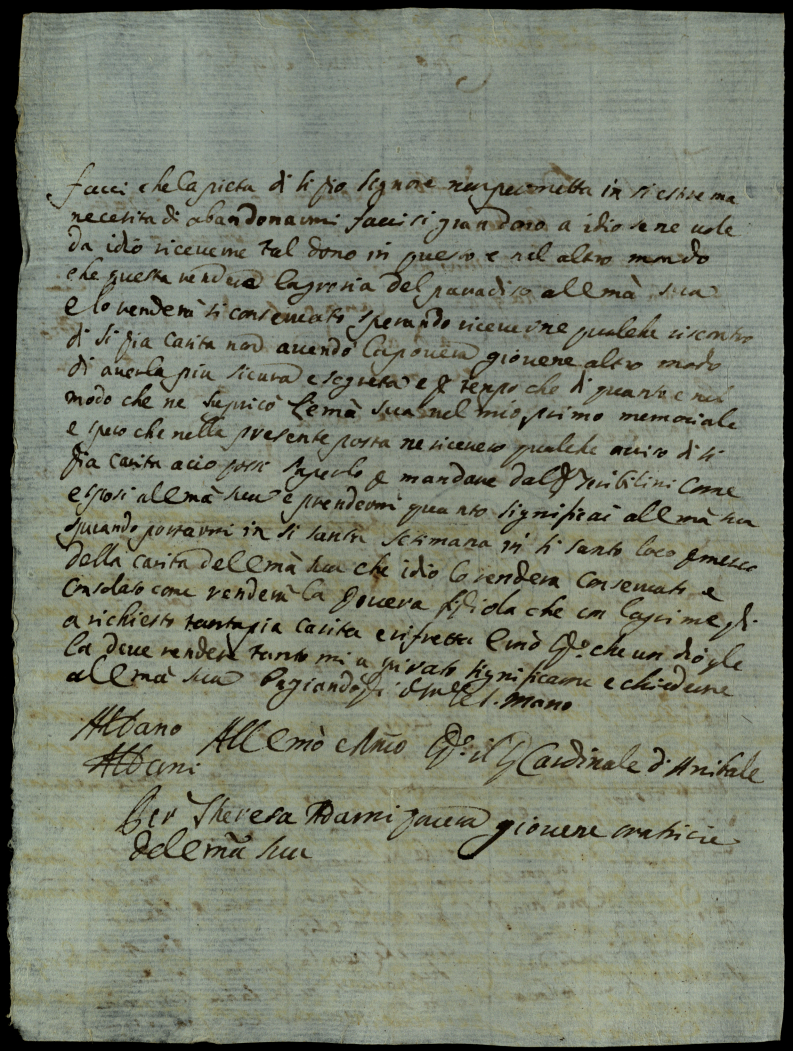 facci che la pieta di si pio Signore non permetta in si estrema
necesita di abandonarmi facci si gran dono a idio se ne vole
da idio riceverne tal dono in questo e nel altro mondo
che questa renderà la groria del paradiso all Emã sua
e lo renderà si conservato sperando riceverne qualche riscontro
di si pia carita non avendo la povera giovene altro modo
di averla piu sicura e segreta e tempo che di quanto e nel
modo che ne suprico l'Emã sua nel mio primo memoriale
e spero che nella presente posta ne ricevero qualche aviso di si
pia carita acio possi saperlo e mandare dal Sibilini come
esposi all Emã sua e prendermi quanto significai all Emã sua
quando portarmi in si santa Setimana in si santo loco
della carita dell Emã sua che idio lo rendera conservato e
consolato come renderà la povera figliola che con lagrime gli
a richiesto tanta pia carita e rifretta che un dio gle
la deve rendere tanto mi a significarne e chiederne
all Emã sua bagiandogli mano
Albano All Emõ e Rmo il Cardinale d'Anibale
Albani
Per Theresa Adami povera giovene oratricie
dell Emã sua